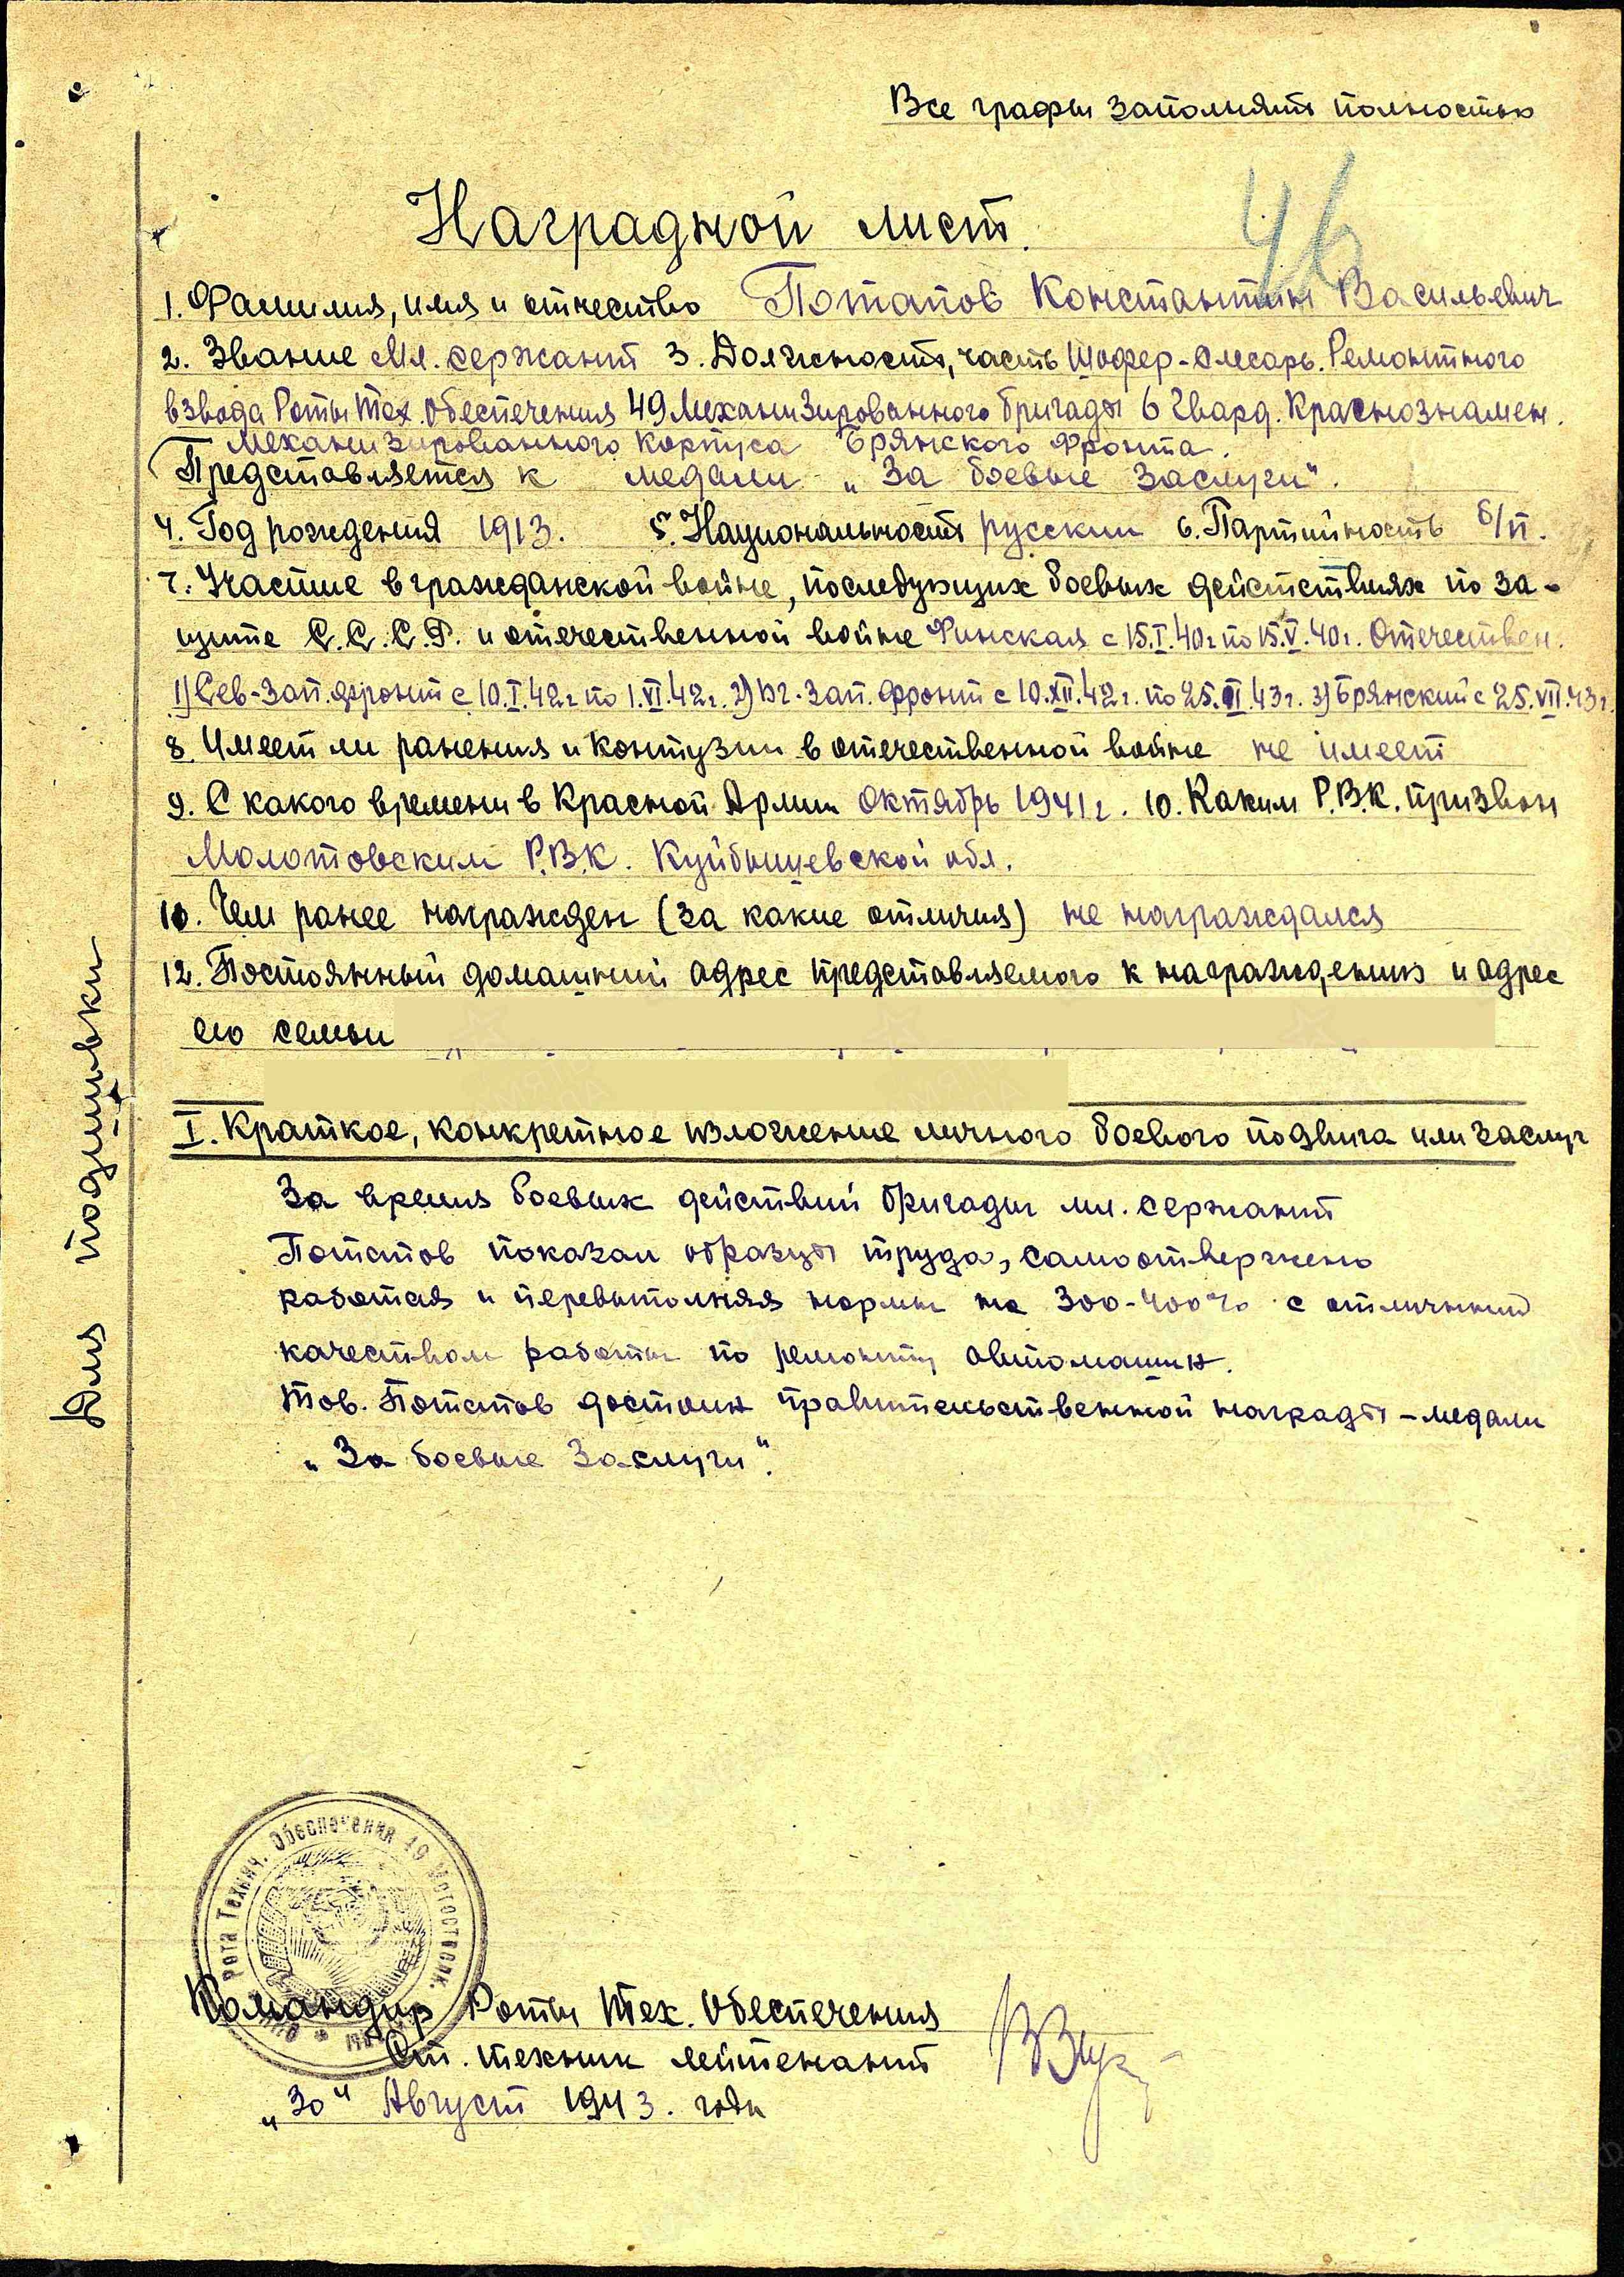 Все графы заполнять полностью
46
Наградной лист.
1. Фамилия, имя и отчество Потапов Константин Васильевич
2. Звание Мл. сержант 3. Должность, часть Шофер-слесарь. Ремонтного
взвода Роты Тех. Обеспечения 49 Механизированного бригады 6 Гвард. Краснознамен.
Механизированного Корпуса Брянского Фронта.
Представляется к медали „За боевые заслуги".
4. Год рождения 1913. 5. Национальность русский 6. Партийность б/п.
7. Участие в гражданской войне, последующих боевых действиях по за-
щите С.С.С.Р. и отечественной войне Финская с 15.I.40г по 15.V.40г. Отечествен.
1) Сев-Зап. фронт с 10.I.42г по 1.VI.42г. 2) Юг-Зап. фронт с 10.XII.42г. по 25.III.43г. 3) Брянский с 25.VII.43г.
8. Имеет ли ранения и контузии в отечественной войне не имеет
9. С какого времени в Красной Армии Октябрь 1941г. 10. Каким Р.В.К. призван
Молотовским Р.В.К. Куйбышевской обл.
10. Чем ранее награжден (за какие отличия) не награждался
12. Постоянный домашний адрес представляемого к награждению и адрес
его семьи
I. Краткое, конкретное изложение личного боевого подвига или заслуг
За время боевых действий бригады мл. сержант
Потапов показал образцы труда, самоотвержено
работая и перевыполняя нормы на 300-400% с отличным
качеством работы по ремонту автомашин.
Тов. Потапов достоин правительственной награды - медали
„За боевые Заслуги".
Для подшивки
Рота Технич. Обеспечения 49 Мотострелк.
Командир Роты Тех. Обеспечения
Ст. техник лейтенант
„30" Август 1943. года